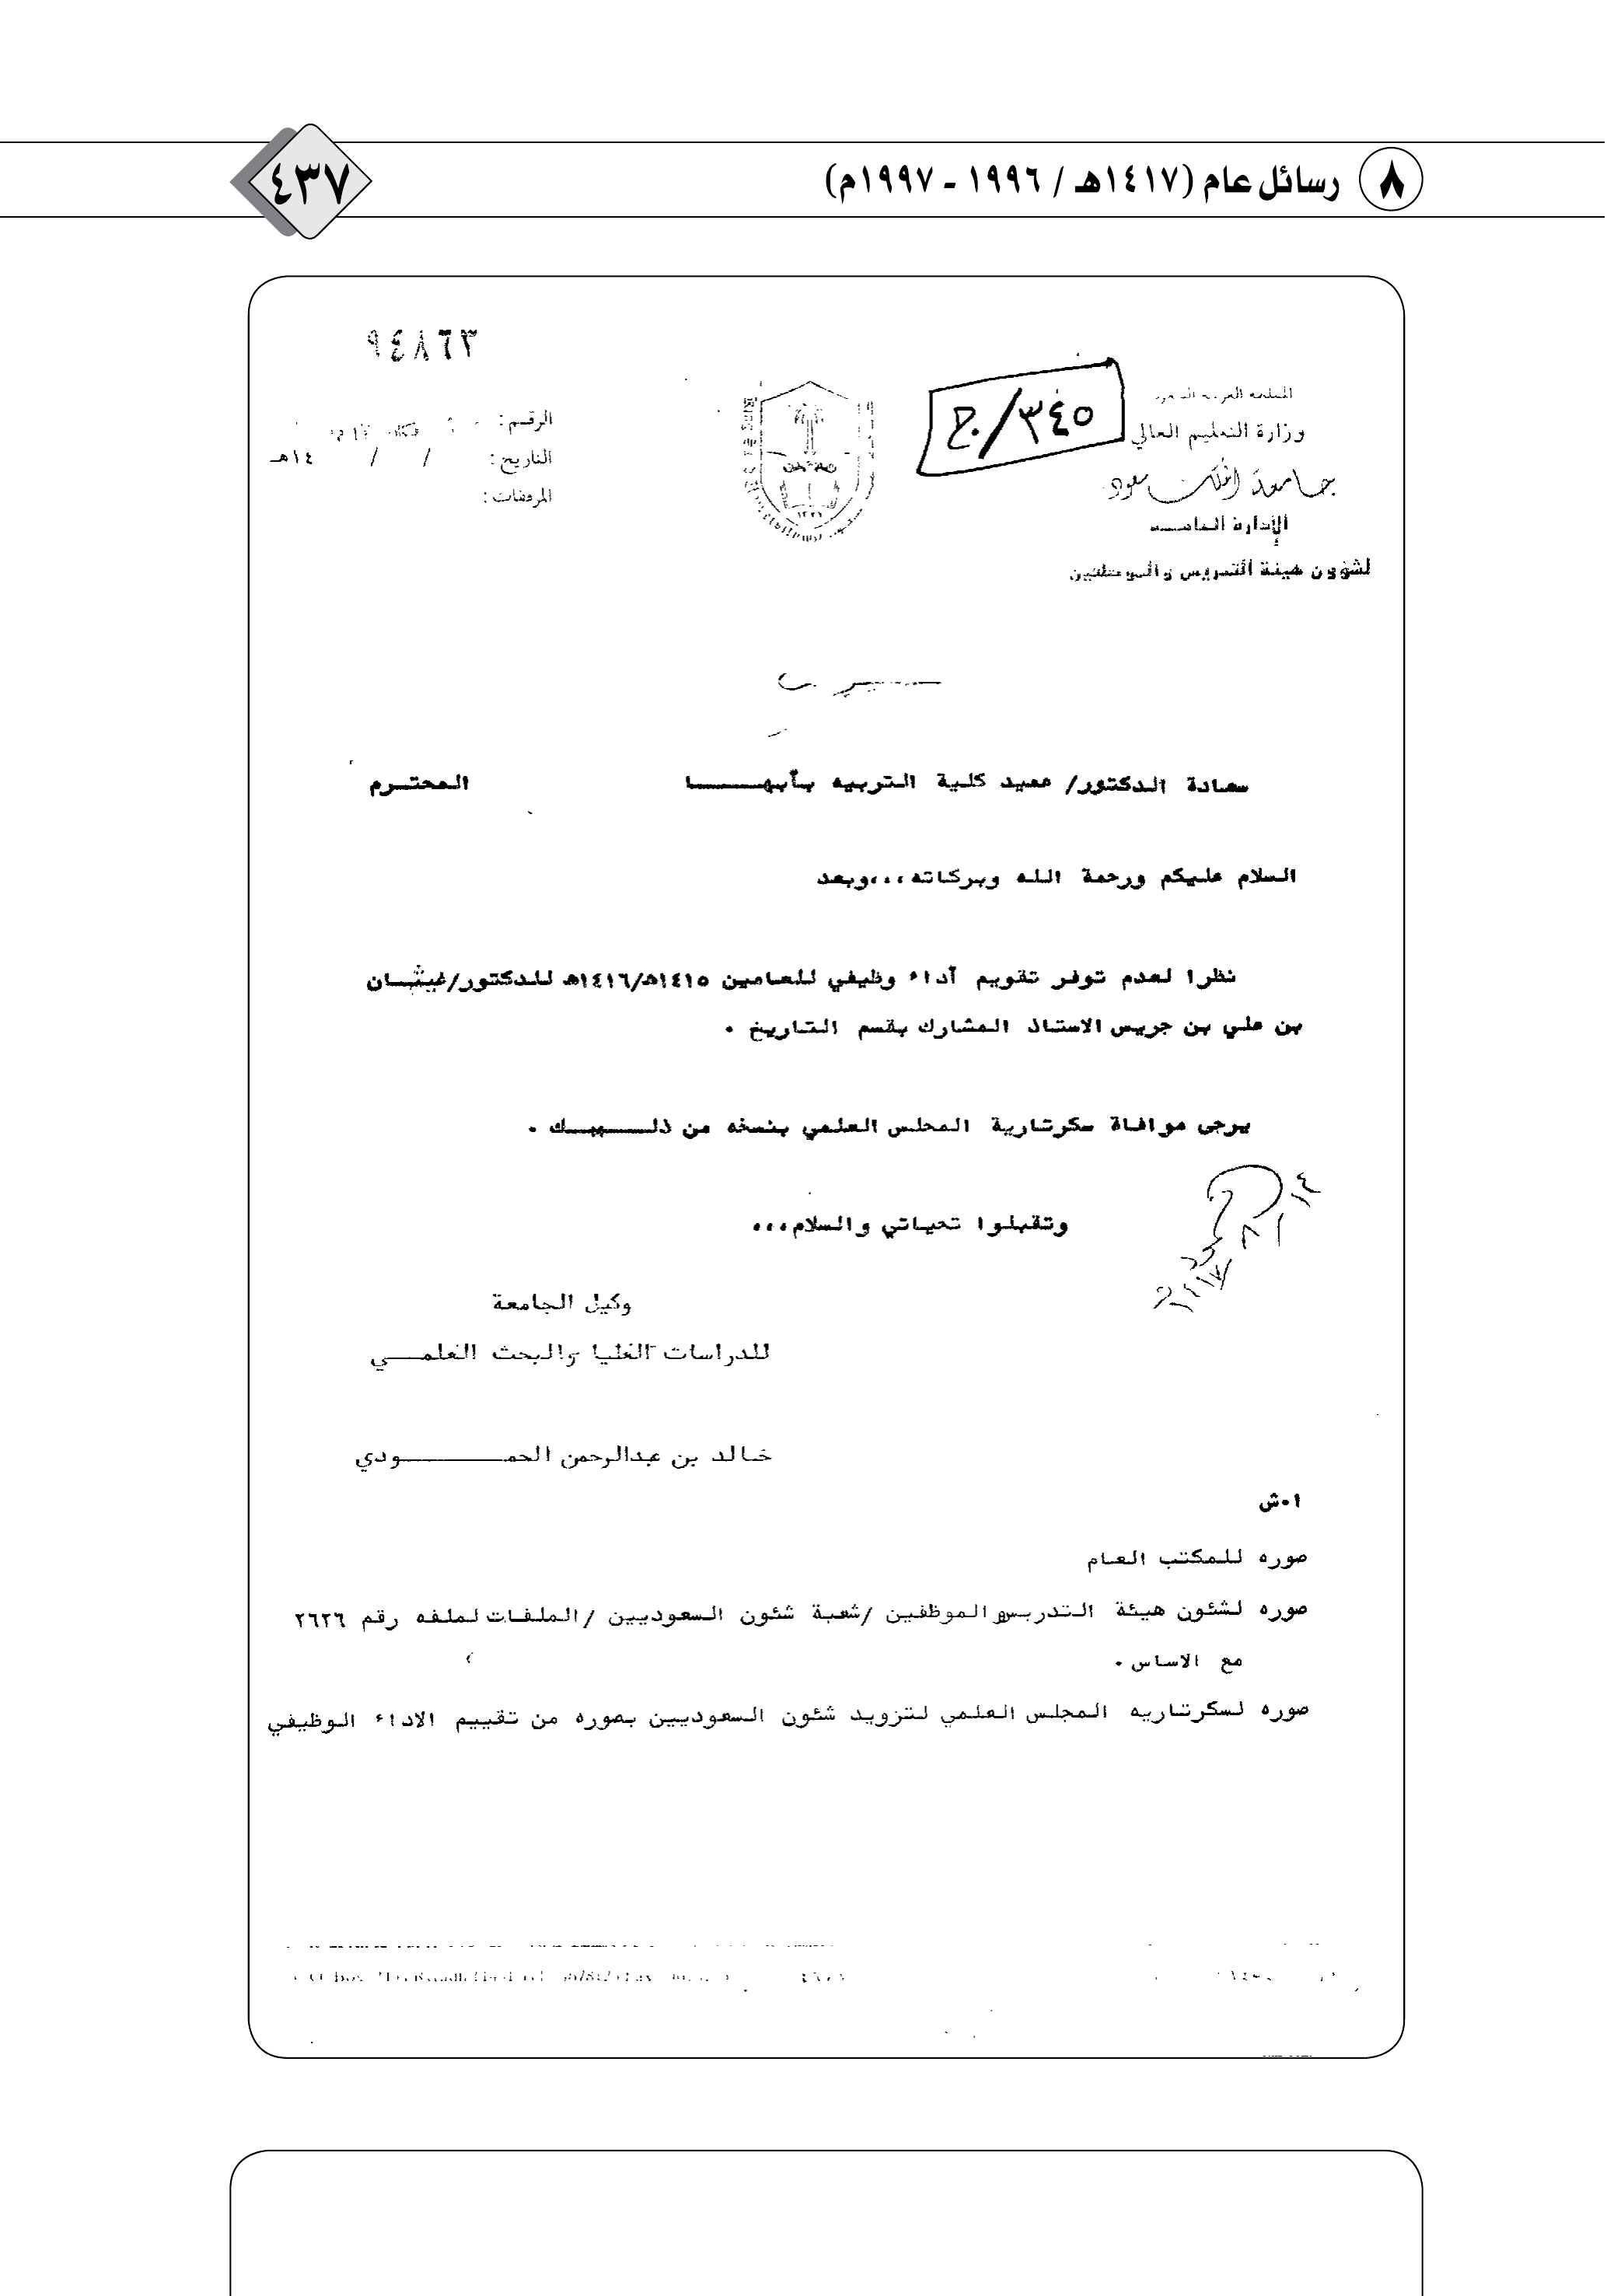 ٨ رسائل عام (١٤١٧هـ / ١٩٩٦ - ١٩٩٧م)
٤٣٧
٩٤٨٦٣
٣٤٥/ج
المملكة العربية السعودية
وزارة التعليم العالي
جامعة الملك سعود
الإدارة العامـــة
لشؤون هيئة التدريس والموظفين
الرقم :
التاريخ : / / ١٤هـ
المرفقات :
١٣٧٧
سعادة الدكتور/ عميد كلية التربيه بأبهـــــا المحتـرم
السلام عليكم ورحمة الله وبركاته،،،وبعد
نظرا لعدم توفر تقويم أداء وظيفي للعامين ١٤١٥هـ/١٤١٦هـ للدكتور/غيثـــان
بن علي بن جريس الاستاذ المشارك بقسم التاريخ .
يرجى موافاة سكرتارية المجلس العلمي بنسخه من ذلـــــك .
وتقبلوا تحياتي والسلام،،،
وكيل الجامعة
للدراسات العليا والبحث العلمـــي
خالد بن عبدالرحمن الحمـــــــودي
ا٠ش
صوره للمكتب العام
صوره لشئون هيئة التدريس والموظفين /شعبة شئون السعوديين /الملفات لملفه رقم ٢٦٢٦
مع الاساس .
صوره لسكرتاريه المجلس العلمي لتزويد شئون السعوديين بصوره من تقييم الاداء الوظيفي